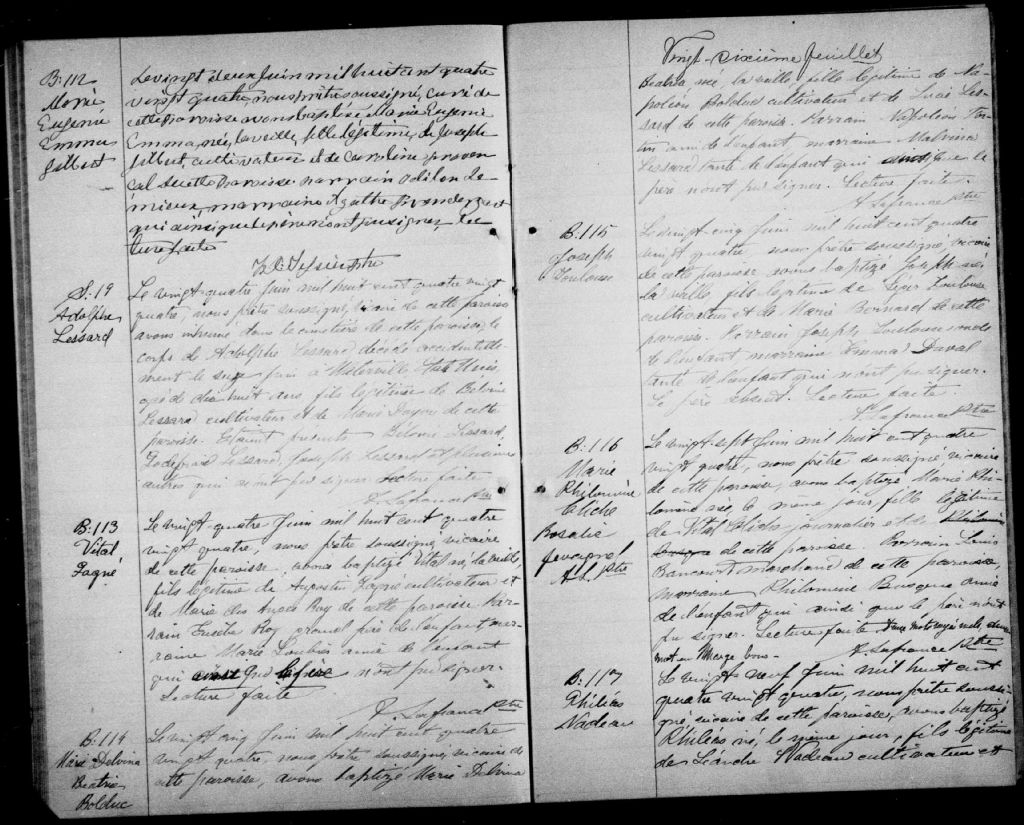 B. 112
Marie
Eugenie
Emma
Gilbert
Le vingt deux Juin mil huit cent quatre
vingt quatre, nous prêtre soussigné, curé de
cette paroisse avons baptisé, Marie Eugenie
Emma, née, la veille, fille légitime, de Joseph
Gilbert, cultivateur et de Caroline proven
cal de cette paroisse parrain Odilon Le-
mieux, marraine Agathe
qui ainsi que le père n'ont pu signer, Lec
ture faite
S. 19
Adolphe
Lessard
Le vingt-quatre Juin mil huit cent quatre vingt
quatre, nous prêtre soussigné, vicaire de cette paroisse
avons inhumé dans le cimetière de cette paroisse, le
corps de Adolphe Lessard décédé accidentelle-
ment le Juin à Waterville Etats Unis,
agé de dix huit ans fils légitime de
Lessard cultivateur et de Marie de cette
paroisse. Etaient présents Lessard,
Godefroid Lessard, Joseph Lessard et plusieurs
autres qui n'ont pu signer Lecture faite
Lafrance ptre
B. 113
Vital
Gagné
Le vingt-quatre Juin mil huit cent quatre
vingt quatre, nous prêtre soussigné, vicaire
de cette paroisse avons baptizé Vital né, la veille,
fils légitime de Augustin Gagné cultivateur et
de Marie des Anges Roy de cette paroisse Par-
rain Eusèbe Roy grand père de l'enfant mar-
raine Marie amie de l'enfant
qui ainsi que le père n'ont pu signer.
Lecture faite
Lafrance ptre
B. 114
Marie Delvina
Beatrice
Bolduc
Le vingt cinq Juin mil huit cent quatre
vingt quatre, nous, prêtre soussigné, vicaire de
cette paroisse, avons baptizé Marie Delvina
Vingt-sixième feuillet
née, la veille fille légitime de Na-
poléon Bolduc cultivateur et de Luce Les-
sard de cette paroisse. Parrain Napoléon
ami de l'enfant, marraine Malvina
Lessard tante de l'enfant qui ainsi que le
père n'ont pu signer. Lecture faite.
Lafrance ptre
B. 115
Joseph
Toulouse
Le vingt cinq Juin mil huit cent quatre
vingt quatre nous prêtre soussigné, vicaire
de cette paroisse avons baptizé Joseph né
la veille, fils légitime de Toulouse
cultivateur et de Marie Bernard de cette
paroisse. Parrain Joseph Toulouse oncle
de l'enfant marraine Emma
tante de l'enfant qui n'ont pu signer.
Le père absent. Lecture faite.
Lafrance ptre
B. 116
Marie
Philomène
Cliche
Rosalie
A L ptre
Le vingt-sept Juin mil huit cent quatre
vingt quatre, nous prêtre soussigné, vicaire
de cette paroisse, avons baptizé Marie Phi-
lomène née, le même jour, fille légitime
de Vital Cliche journalier et de
de cette paroisse Parrain Louis
marchand de cette paroisse,
marraine Philomène Busque amie
de l'enfant qui ainsi que le père n'ont
pu signer. Lecture faite Deux mots rayés nuls, deux
mots en Marge bons. A Lafrance ptre
B. 117
Philéas
Nadeau
Le vingt-neuf Juin mil huit cent
quatre vingt quatre, nous prêtre soussi-
gné, vicaire de cette paroisse, avons baptizé
Philéas né, le même jour, fils légitime
de Léandre Nadeau cultivateur et